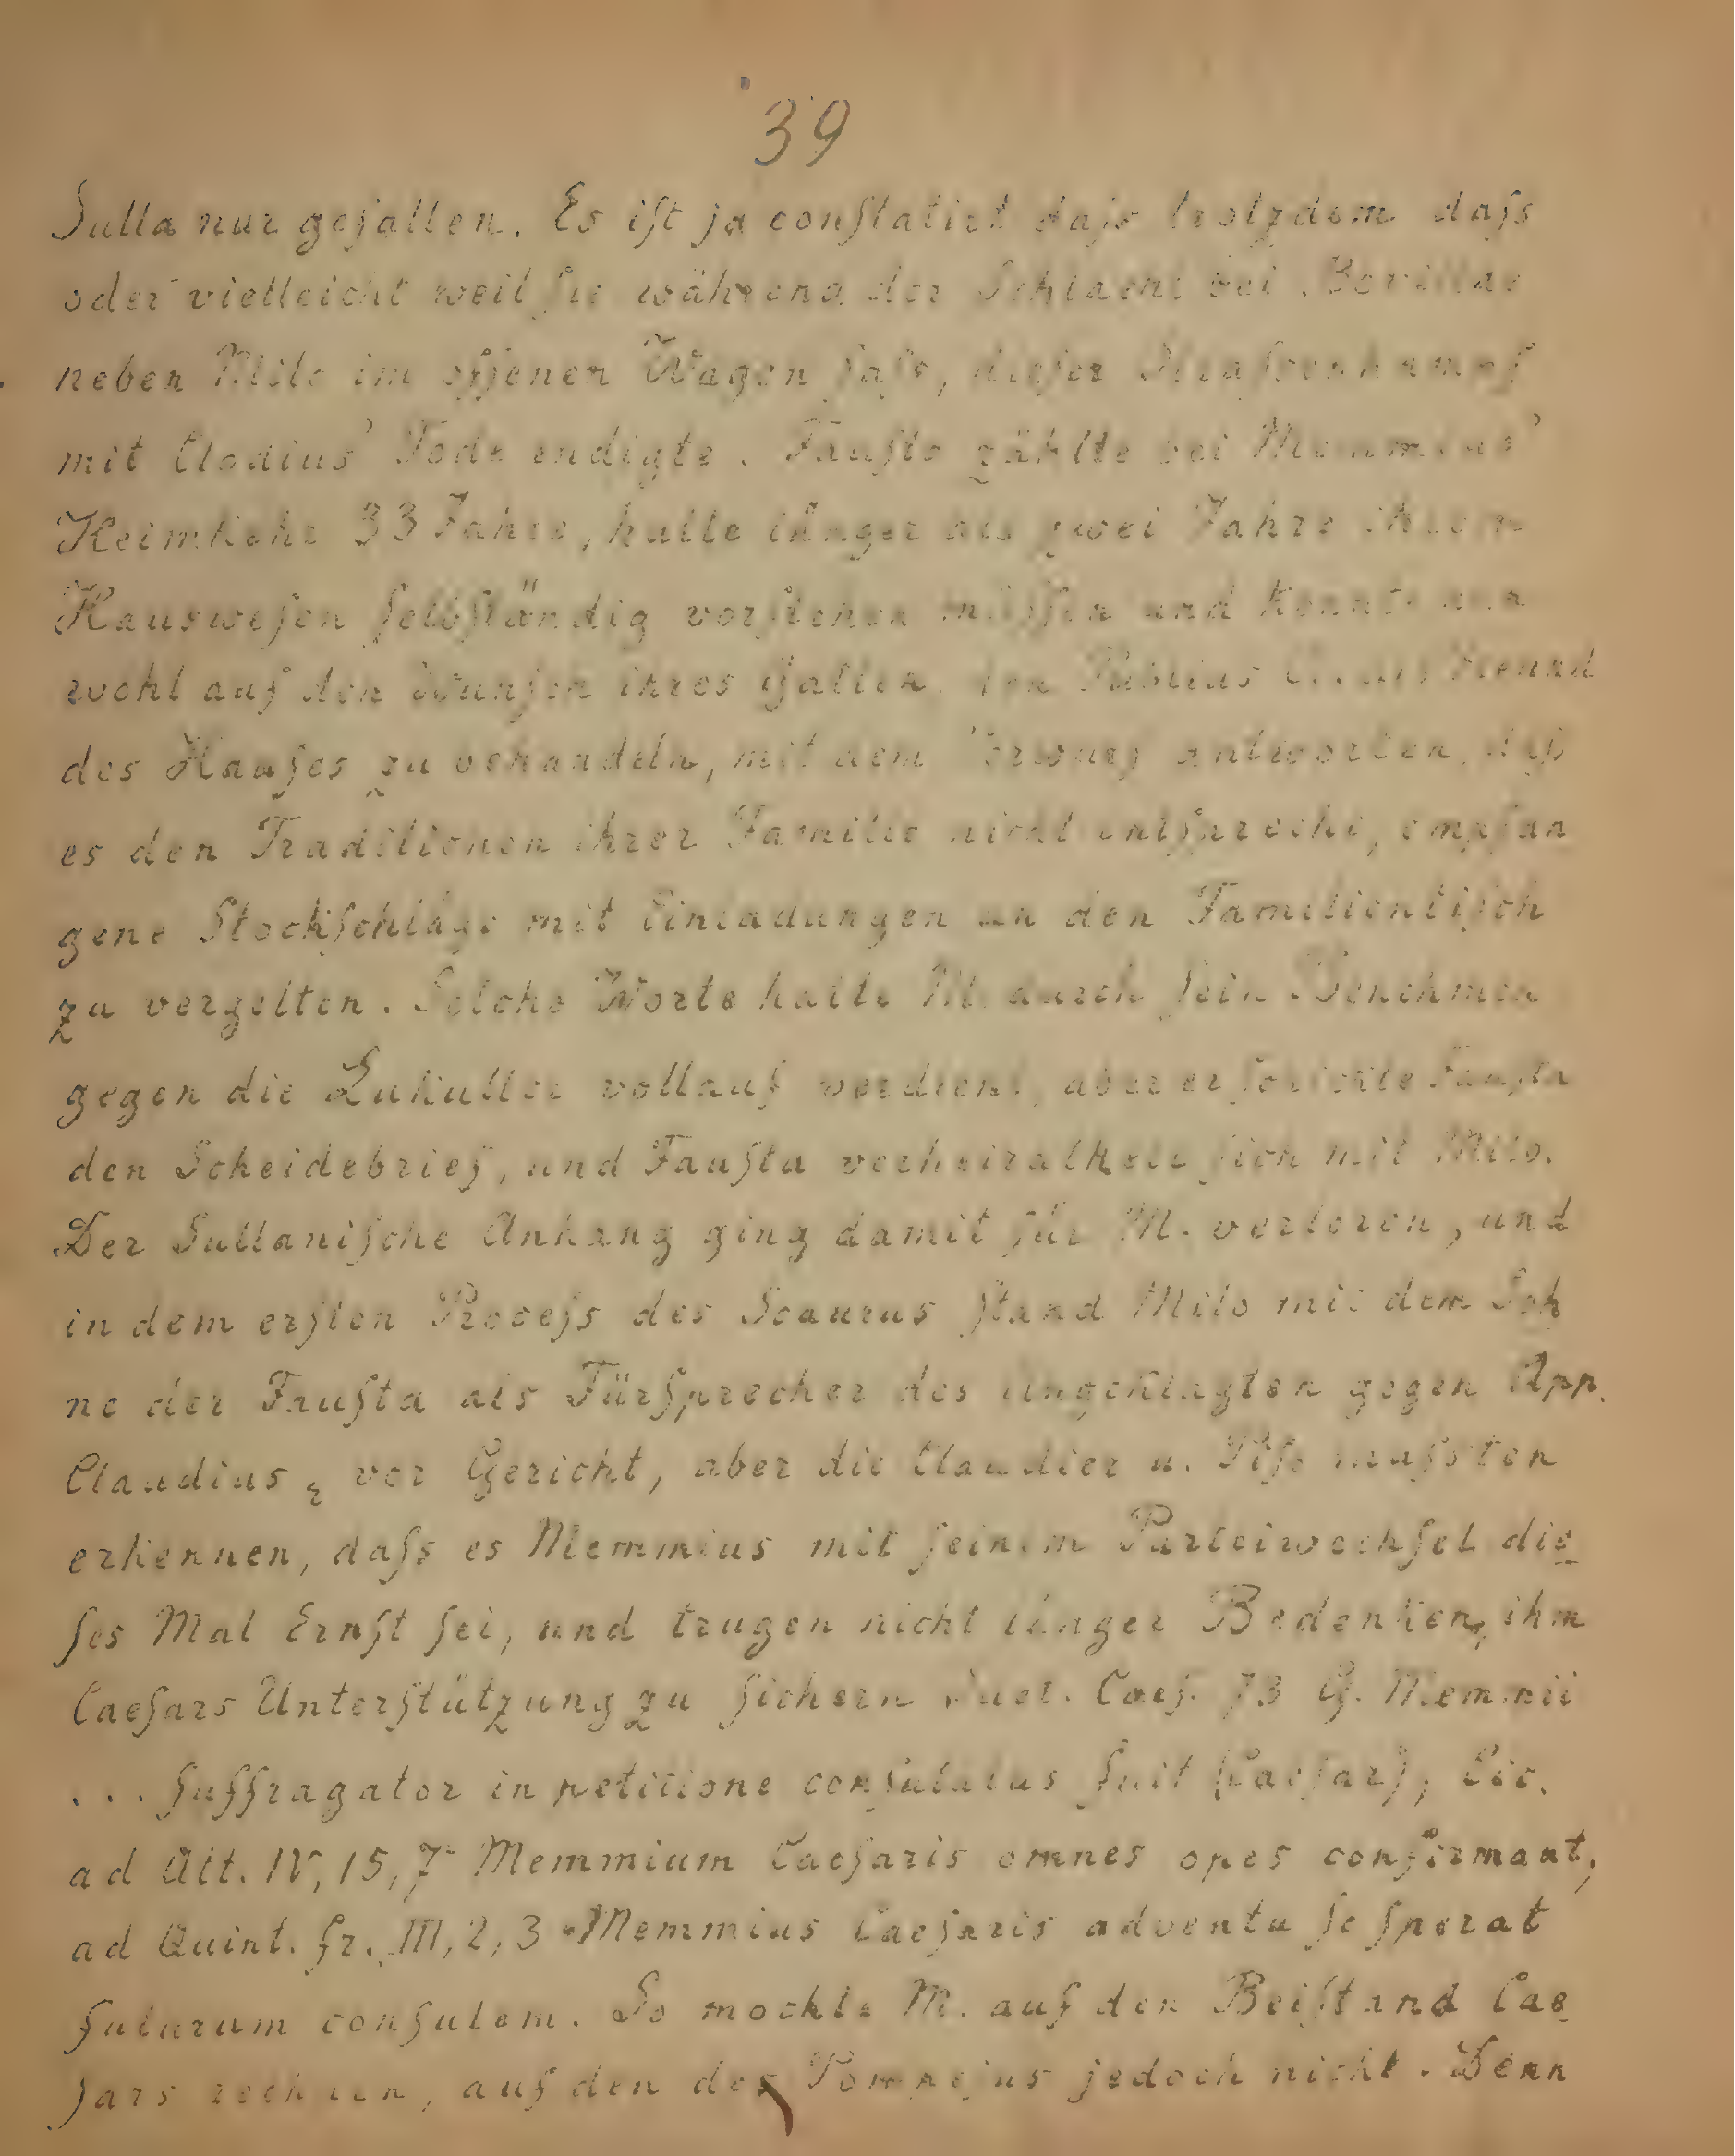 39
Sulla nur gefallen. Es iſt ja conſtatirt daſs trotzdem daſs
oder vielleicht weil ſie während der Schlacht bei Bovillae
neben Milo im offenen Wagen ſaſs, dieſer Straſsenkampf
mit Clodius' Tode endigte. Fauſta zählte bei Memmius'
Heimkehr 33 Jahre, hatte länger als zwei Jahre ihrem
Hausweſen ſelbſtändig vorſtehen müſſen und konnte nun
wohl auf den Wunſch ihres Gatten, den Publius als Freund
des Hauſes zu behandeln, mit dem antworten, daſs
es den Traditionen ihrer Familie nicht entſpreche, empfan
gene Stockſchläge mit Einladungen an den Familientiſch
zu vergelten. Solche Worte hatte M. durch ſein Benehmen
gegen die Lukuller vollauf verdient, aber er ſchickte Fauſta
den Scheidebrief, und Fauſta verheirathete ſich mit Milo.
Der Sullaniſche Anhang ging damit für M. verloren, und
in dem erſten Proceſs des Scaurus ſtand Milo mit dem Soh
ne der Fauſta als Fürſprecher des Angeklagten gegen App.
Claudius, vor Gericht, aber die Claudier u. Piſo muſsten
erkennen, daſs es Memmius mit ſeinem Parteiwechſel die
ſes Mal Ernſt ſei, und trugen nicht länger Bedenken, ihm
Caeſars Unterſtützung zu ſichern Suet. Caeſ. 73 G. Memmii
... ſuffragator in petitione conſulatus fuit (Caeſar), Cic.
ad Att. IV, 15, 7 Memmium Caeſaris omnes opes confirmant,
ad Quint. fr. III, 2, 3 Memmius Caeſaris adventu ſe ſperat
futurum conſulem. So mochte M. auf den Beiſtand Cae
ſars rechnen, auf den des Pompejus jedoch nicht. Denn